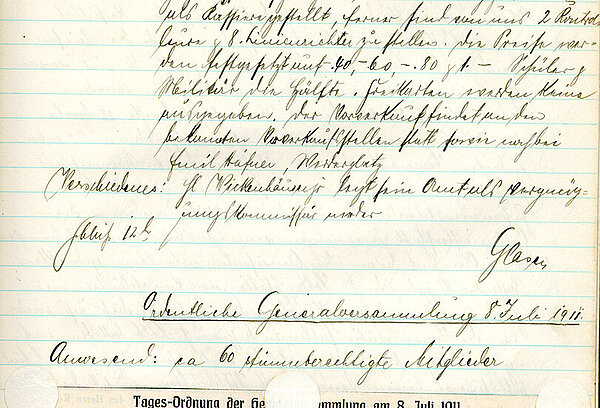 als Kassiere gestellt, ferner sind von uns 2 Kontrol-
leure & 8. Linienrichter zu stellen. Die Preise wur-
den festgesetzt auf -.40, -.60, -.80 & 1.- Schüler &
Militär die Hälfte. Freikarten werden keine
ausgegeben. Der Vorverkauf findet an den
bekannten Vorverkaufsstellen statt sowie noch bei
Emil Hafner, Werderplatz
Verschiedenes: H Wickenhäuser legt sein Amt als Vergnüg-
ungskommissär nieder
Schluß 12h
Glaser
Ordentliche Generalversammlung 8. Juli 1911
Anwesend: ca 60 stimmberechtigte Mitglieder
Tages-Ordnung der Ge mmlung am 8. Juli 1911